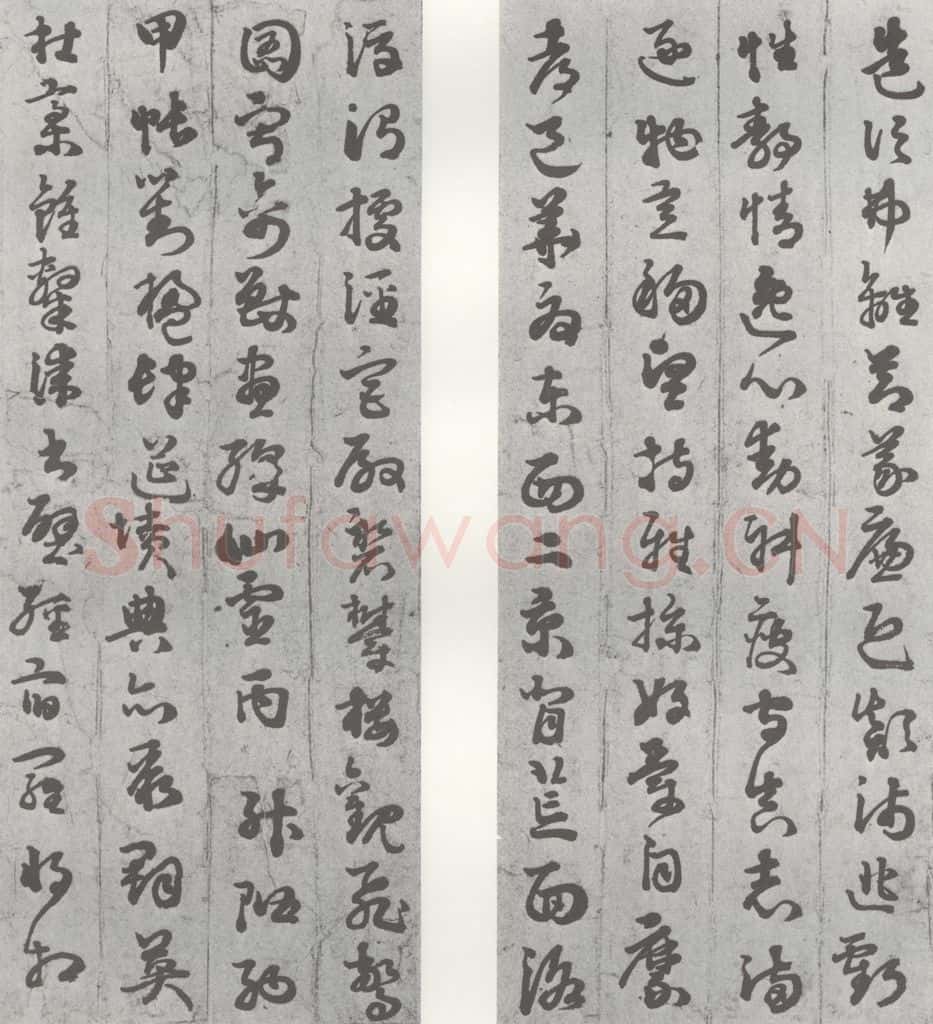 造次弗離節義廉退顛沛匪虧
性靜情逸心動神疲守真志滿
逐物意移堅持雅操好爵自縻
都邑華夏東西二京背芒面洛
浮渭據涇宮殿盤鬱樓觀飛驚
圖寫禽獸畫綵仙靈丙升階納
甲帳對楹肆筵墳典亦聚群英
杜稾鍾隸漆書壁經府羅將相
Shufawang.CN